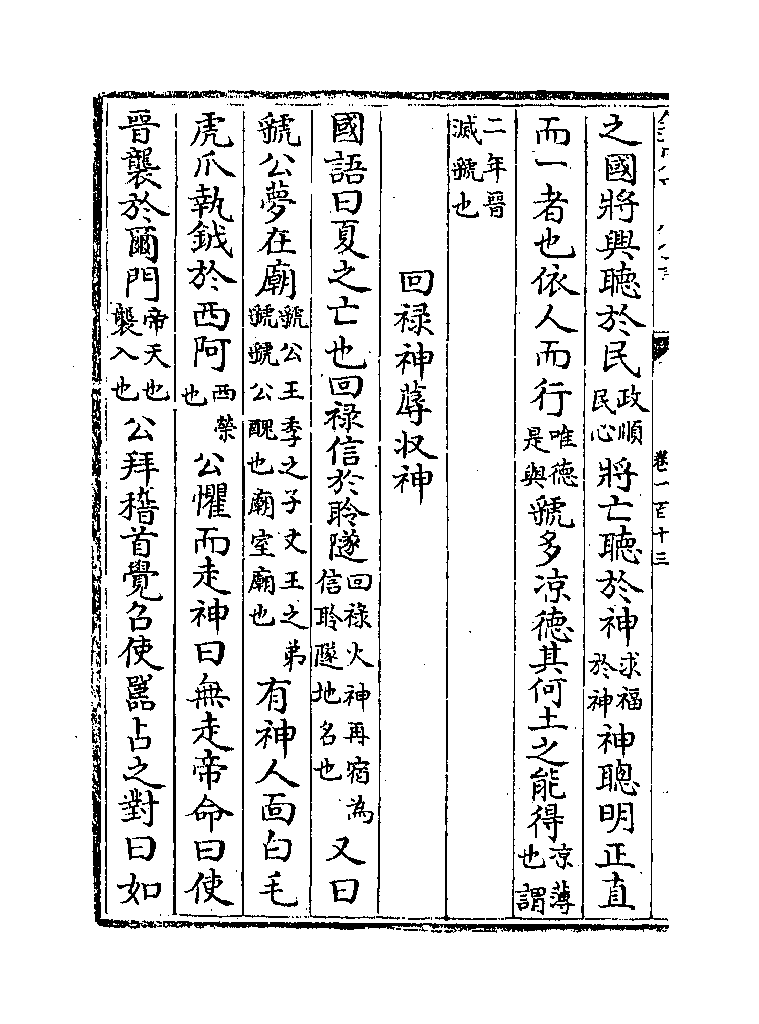 卷一百十三
之國將興聽於民政順民心將亡聽於神求福於神神聰明正直
而一者也依人而行唯德是與虢多凉德其何土之能得凉薄也謂
二年晉滅虢也
回禄神蓐收神
國語曰夏之亡也回禄信於聆隧回祿火神再宿為信聆隧地名也又曰
虢公夢在廟虢公王季之子文王之弟虢虢公醜也廟室廟也有神人面白毛
虎爪執鉞於西阿西榮也公懼而走神曰無走帝命曰使
晉襲於爾門帝天也襲入也公拜稽首覺召使嚚占之對曰如